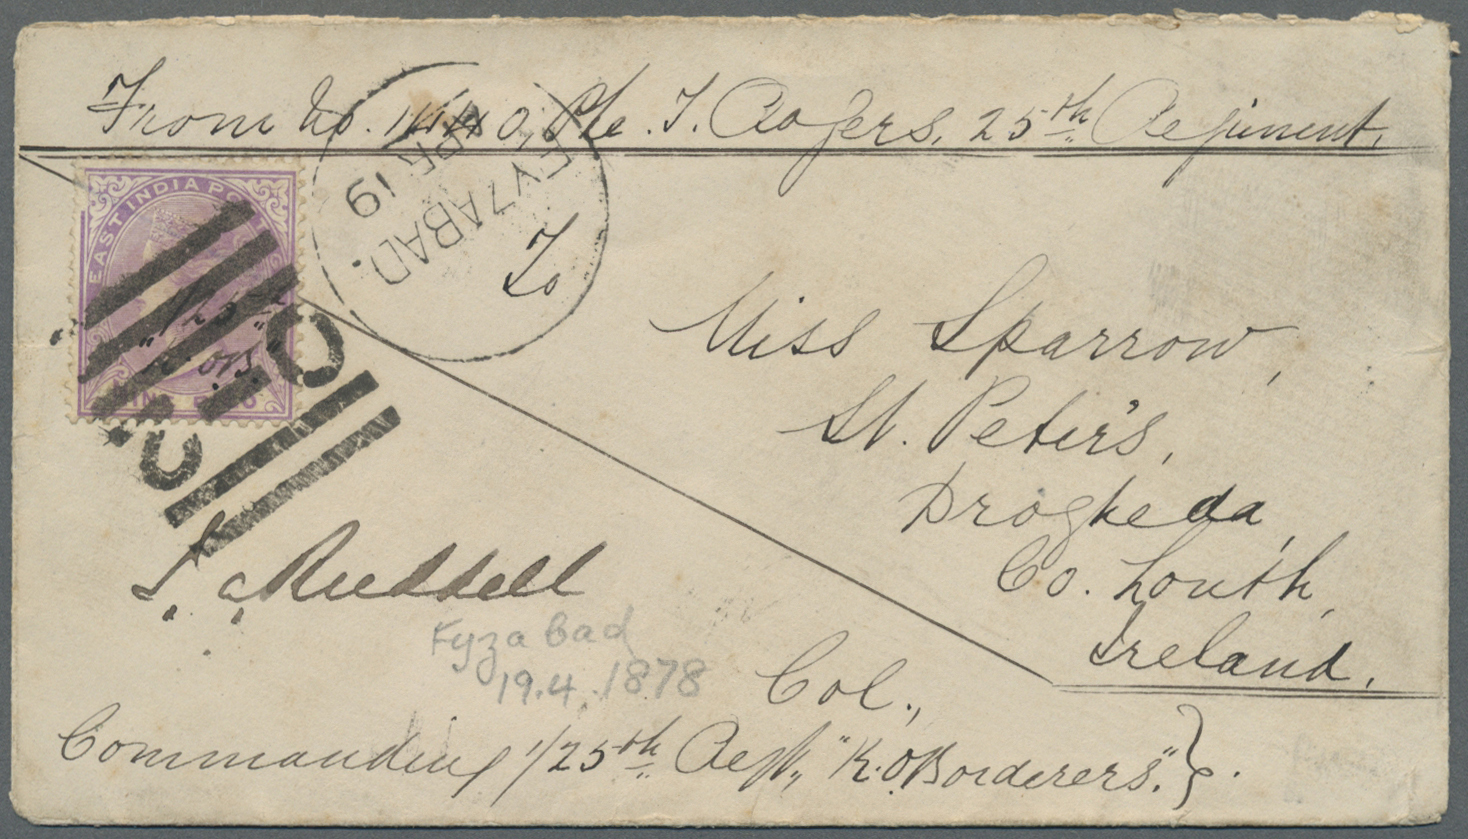 From No. 1440 Pte. T. Rogers, 25th Regiment,
EAST INDIA
FYZABAD.
APR 19
To
Miss Sparrow,
St. Peter's,
Drogheda,
Co. Louth,
Ireland.
Ruddell
Fyzabad
19.4.1878
Col.,
Commanding 1/25th Regt., "K.O. Borderers".